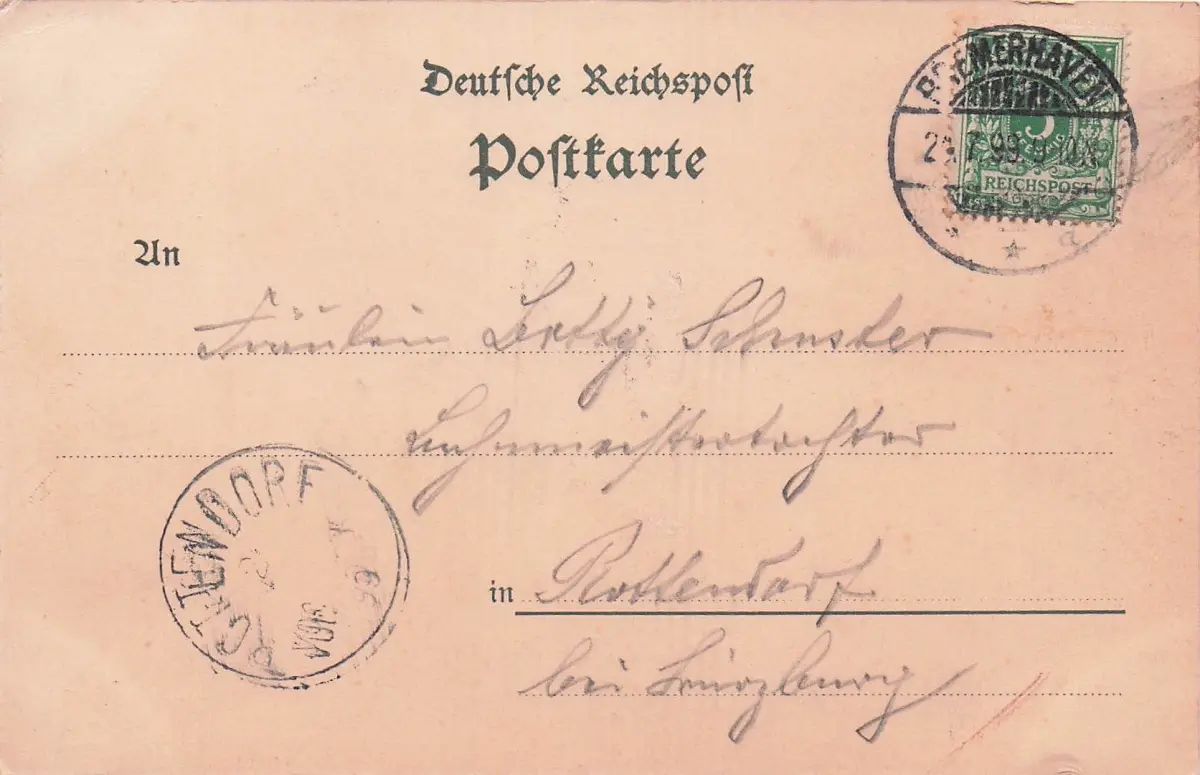 Deutsche Reichspost
Postkarte
BREMERHAVEN
7 99 9-10
a
5
PFENNIG
REICHSPOST
An
Fräulein Betty Schuster
Bahnmeisterstochter
in Rottendorf
bei Würzburg
ROTTENDORF
VORM